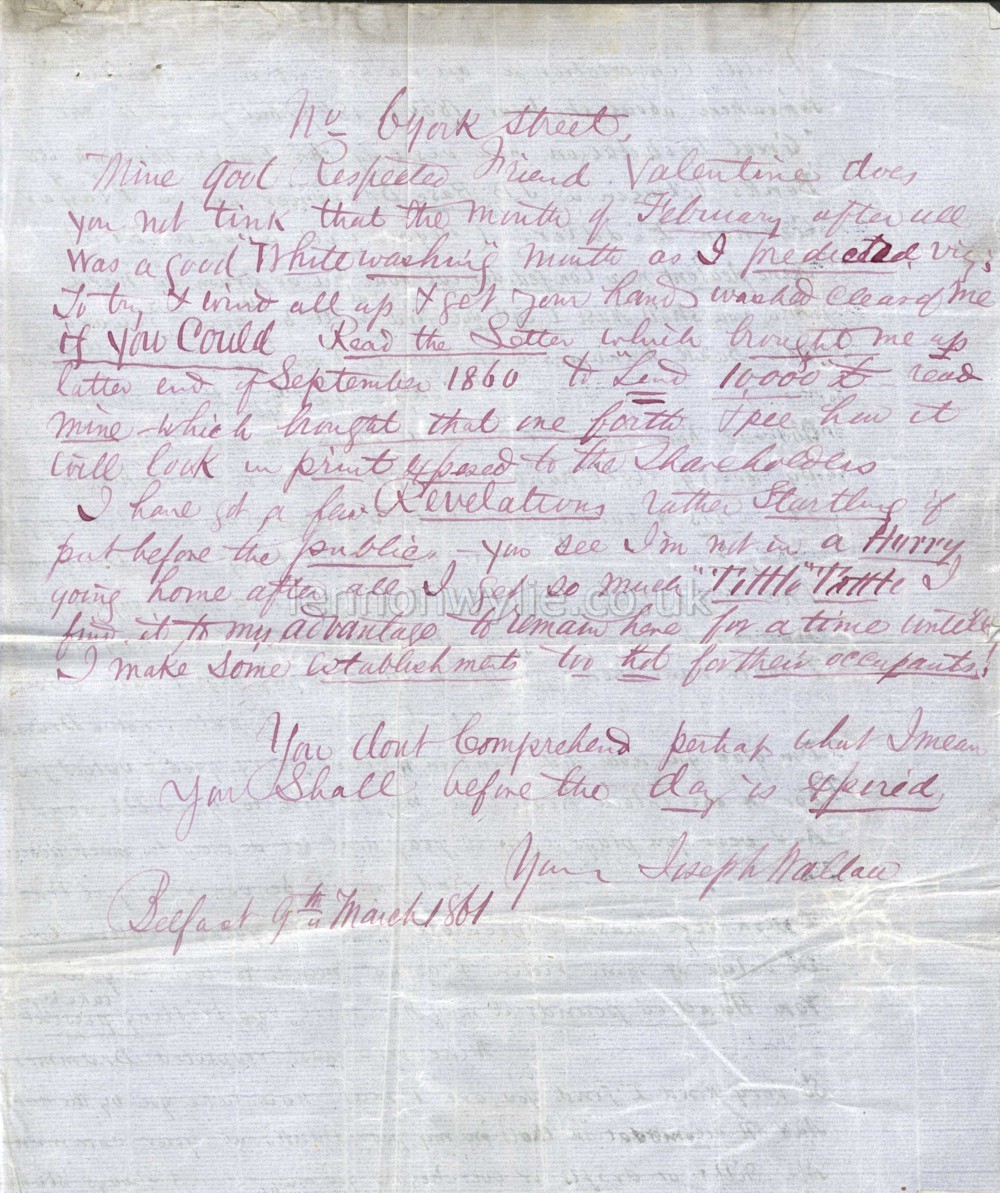 No 6 York Street,
Mine good Respected Friend Valentine does
you not tink that the month of February after all
was a good "Whitewashing" month as I predicted viz:
To try & wind all up & get your hands washed clear of me
if you Could Read the Letter which brought me up
latter end of September 1860 to "Lend 10,000"£ read
mine which brought that one forth & see how it
will look in print exposed to the Shareholders
I have got a few Revelations rather Startling if
put before the public. - you see I'm not in a Hurry
going home after all I get so much "Tittle" Tattle I
find it to my advantage to remain here for a time until
I make some establishments too hot for their occupants!
You dont Comprehend perhaps what I mean
You Shall before the day is expired,
Yours Joseph Wallace
Belfast 9th March 1861
lennonwylie.co.uk